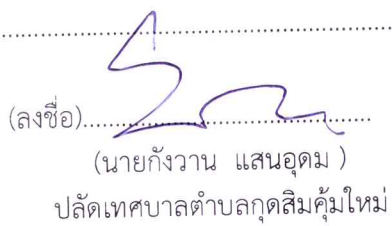 (ลงชื่อ)
(นายกังวาน แสนอุดม )
ปลัดเทศบาลตำบลกุดสิมคุ้มใหม่